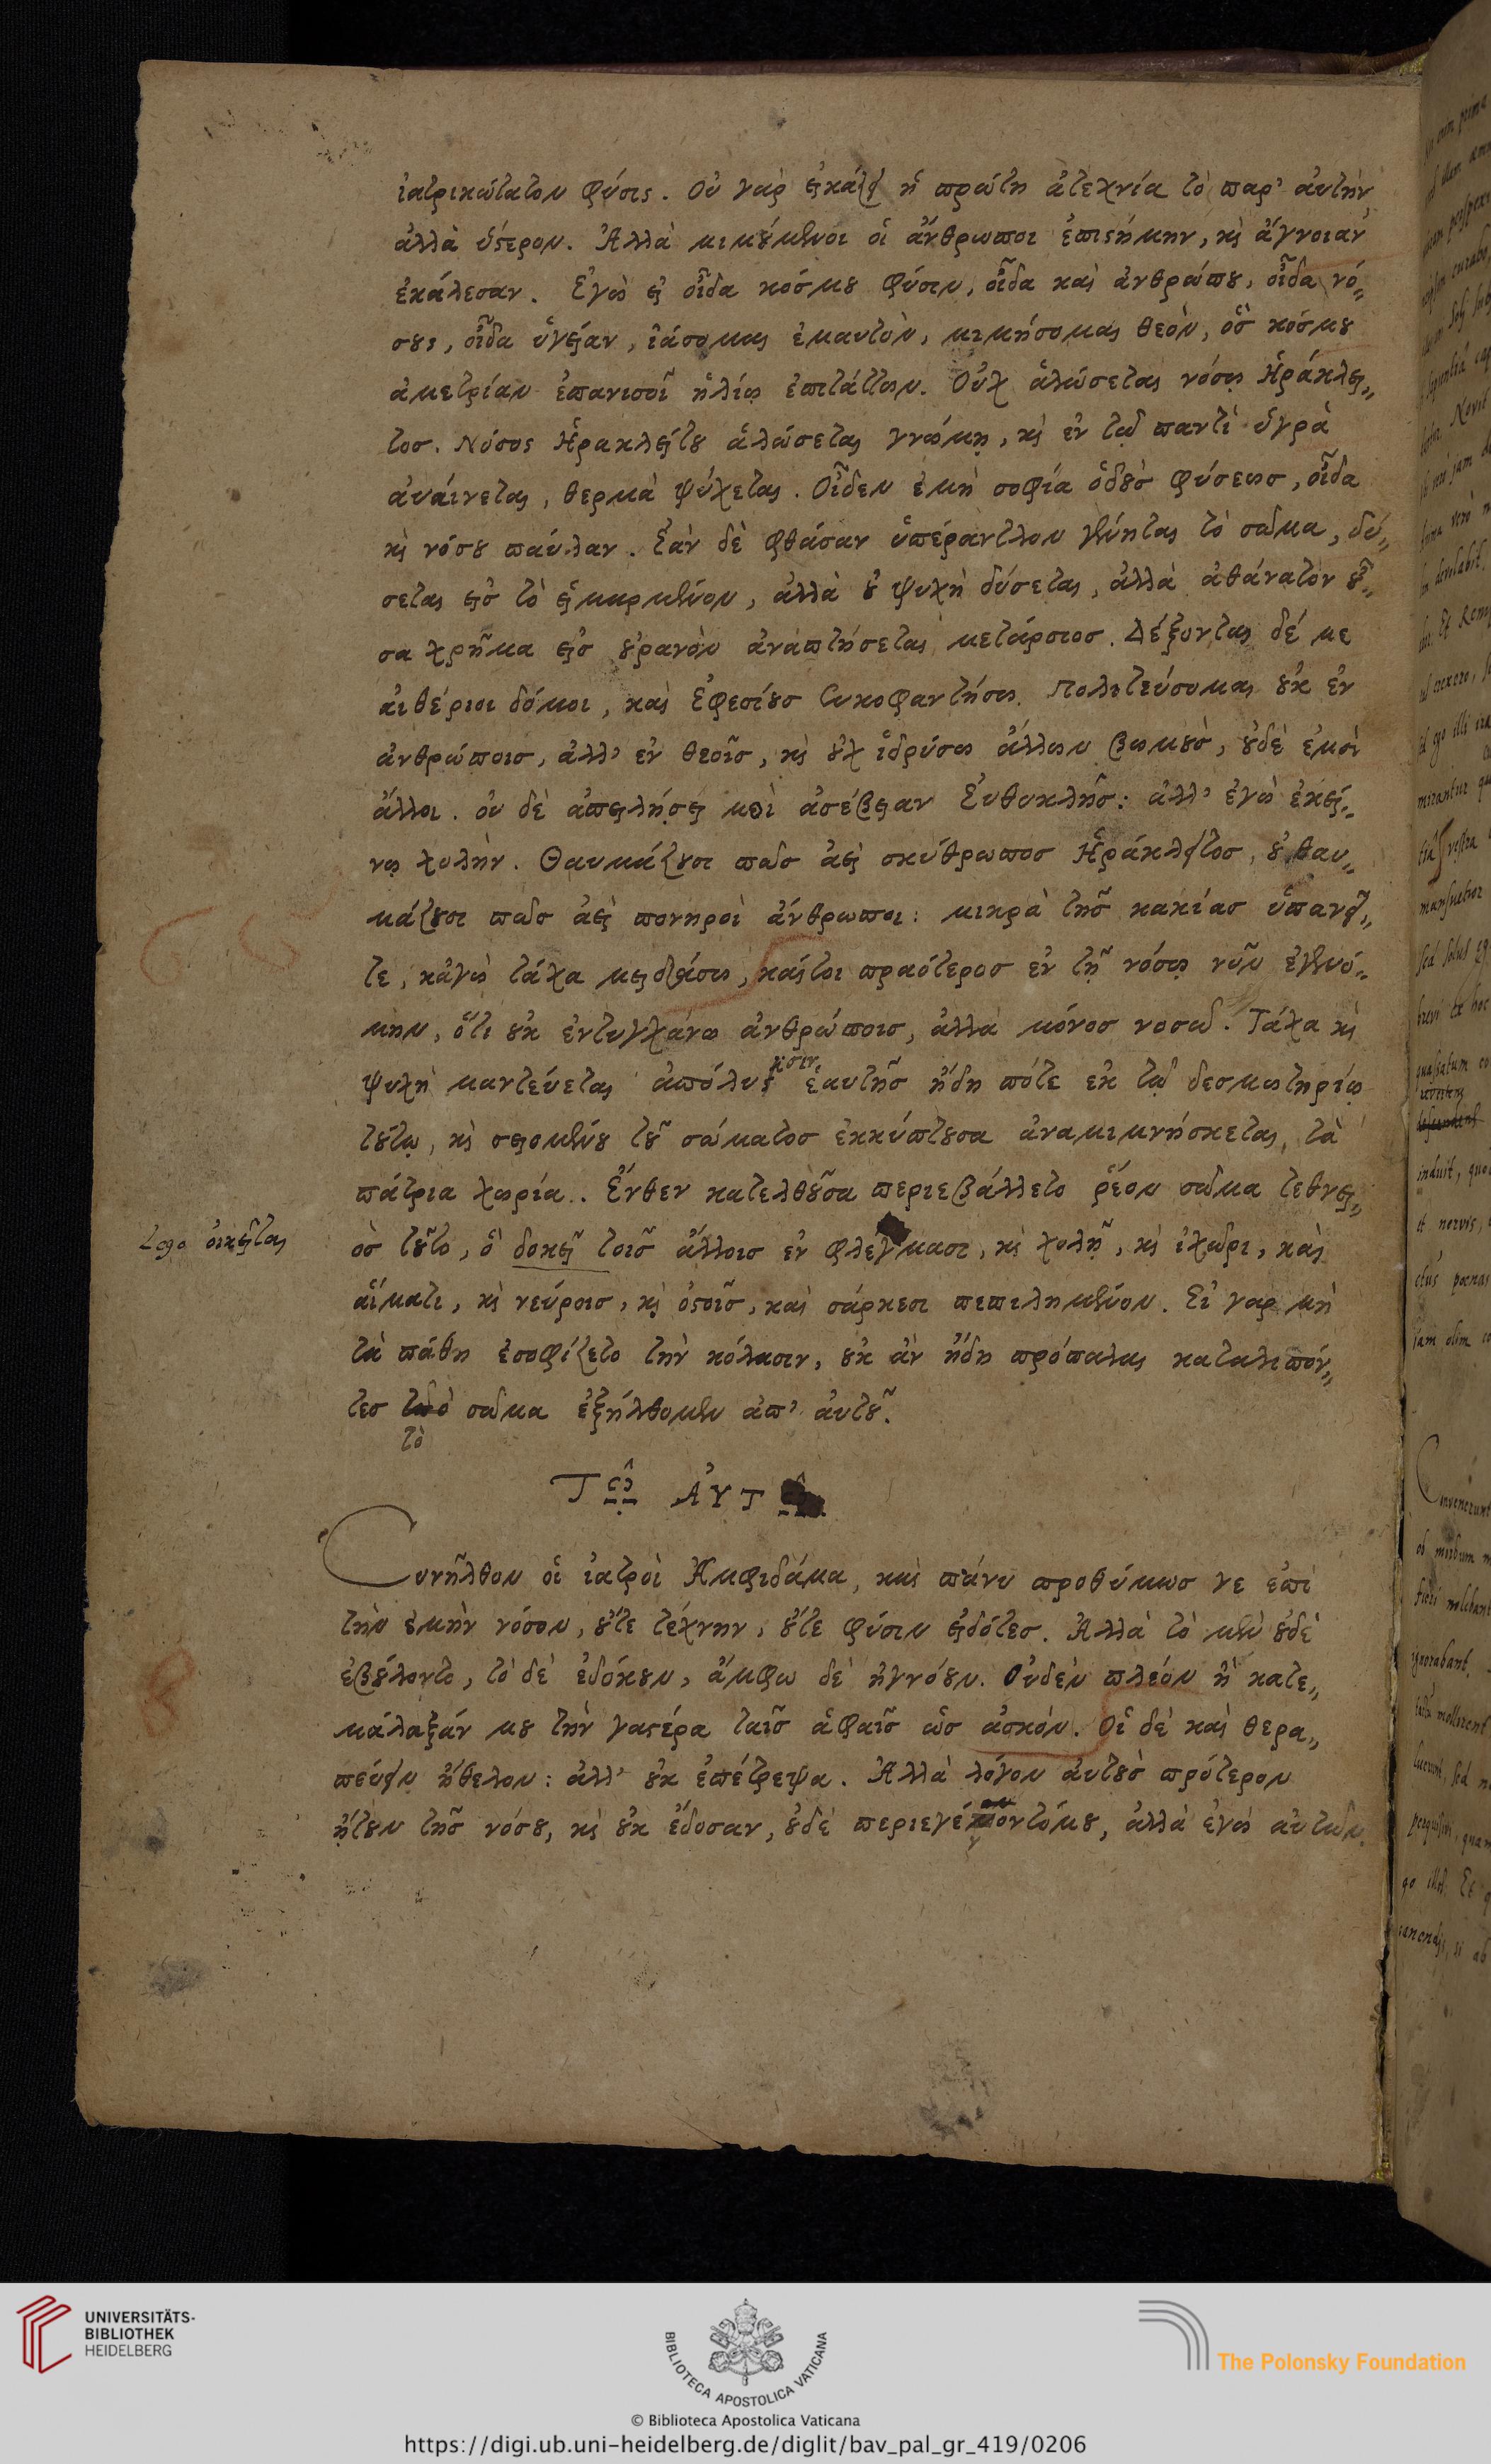 ἰατρικώτατον φύσις. Οὐ γὰρ εἰκάζει ἡ πρώτη ἀτεχνία τὸ παρ' αὐτὴν
ἀλλὰ ὕστερον. Ἀλλὰ μιμούμενοι οἱ ἄνθρωποι ἐπιστήμην, καὶ ἄγνοιαν
ἐκάλεσαν. Ἐγὼ εἰ οἶδα κόσμου φύσιν, οἶδα καὶ ἀνθρώπου, οἶδα νό„
σους, οἶδα ὑγείαν, ἰάσομαι ἐμαυτὸν, μιμήσομαι θεὸν, ὃς κόσμου
ἀμετρίαν ἐπανισοῖ ἡλίῳ ἐπιτάττων. Οὐχ ἁλώσεται νόσῳ Ἡράκλει„
τος. Νόσος Ἡρακλείτου ἁλώσεται γνώμῃ, καὶ ἐν τῷ παντὶ ὑγρὰ
ἀυαίνεται, θερμὰ ψύχεται. Οἶδεν ἐμὴ σοφία ὁδοὺς φύσεως, οἶδα
καὶ νόσου παύλαν. Ἐὰν δὲ φθάσαν ὑπέραντλον γένηται τὸ σῶμα, δύ„
σεται εἰς τὸ εἱμαρμένον, ἀλλὰ οὐ ψυχὴ δύσεται, ἀλλὰ ἀθάνατον οὖ„
σα χρῆμα εἰς οὐρανὸν ἀναπτήσεται μετάρσιος. Δέξονται δέ με
αἰθέριοι δόμοι, καὶ Ἐφεσίους συκοφαντήσω. Πολιτεύσομαι οὐκ ἐν
ἀνθρώποις, ἀλλ' ἐν θεοῖς, καὶ οὐχ ἱδρύσω ἄλλων βωμοὺς, οὐδὲ ἐμοὶ
ἄλλοι. οὐ δὲ ἀπειλήσει μοὶ ἀσέβειαν Εὐθυκλῆς: ἀλλ' ἐγὼ ἐκεί„
νῳ χολήν. Θαυμάζουσι πῶς ἀεὶ σκύθρωπος Ἡράκλειτος, οὐ θαυ„
μάζουσι πῶς ἀεὶ πονηροὶ ἄνθρωποι: μικρὰ τῆς κακίας ὑπανεῖ„
τε, κἀγὼ τάχα μειδιάσω, καίτοι πραότερος ἐν τῇ νόσῳ νῦν ἐγενό„
μην, ὅτι οὐκ ἐντυγχάνω ἀνθρώποις, ἀλλὰ μόνος νοσῶ. Τάχα καὶ
ψυχὴ μαντεύεται ἀπόλυσιν ἑαυτῆς ἤδη πότε ἐκ τῷ δεσμωτηρίῳ
τούτῳ, καὶ σειομένου τοῦ σώματος ἐκκύπτουσα ἀναμιμνήσκεται, τὰ
πάτρια χωρία.. Ἔνθεν κατελθοῦσα περιεβάλλετο ῥέον σῶμα τεθνει„
Lego οἰκεῖται
ὸς τοῦτο, ὃ δοκεῖ τοῖς ἄλλοις ἐν φλέγμασι, καὶ χολῇ, καὶ ἰχῶρι, καὶ
αἵματι, καὶ νεύροις, καὶ ὀστοῖς, καὶ σάρκεσι πεπιλημένον. Εἰ γαρ μὴ
τὰ πάθη ἐσοφίζετο τὴν κόλασιν, οὐκ ἂν ἤδη πρόπαλαι καταλιπόν„
τες τὸ σῶμα ἐξήλθομεν ἀπ' αὐτοῦ.
Τῷ Αὐτῷ.
Συνῆλθον οἱ ἰατροὶ Ἀμφιδάμα, καὶ πάνυ προθύμως γε ἐπὶ
τὴν ἐμὴν νόσον, οὔτε τέχνην, οὔτε φύσιν εἰδότες. Ἀλλὰ τὸ μὲν οὐδὲ
ἐβούλοντο, τὸ δὲ ἐδόκουν, ἄμφω δὲ ἠγνόουν. Οὐδὲν πλέον ἢ κατε„
μάλαξάν μου τὴν γαστέρα ταῖς ἁφαῖς ὡς ἀσκόν. Οἱ δὲ καὶ θερα„
πεύειν ἤθελον: ἀλλ' οὐκ ἐπέτρεψα. Ἀλλὰ λόγον αὐτοὺς πρότερον
ᾔτουν τῆς νόσου, καὶ οὐκ ἔδοσαν, οὐδὲ περιεγένοντό μου, ἀλλὰ ἐγὼ αὐτῶν.
UNIVERSITÄTS-
BIBLIOTHEK
HEIDELBERG
BIBLIOTECA APOSTOLICA VATICANA
The Polonsky Foundation
© Biblioteca Apostolica Vaticana
https://digi.ub.uni-heidelberg.de/diglit/bav_pal_gr_419/0206